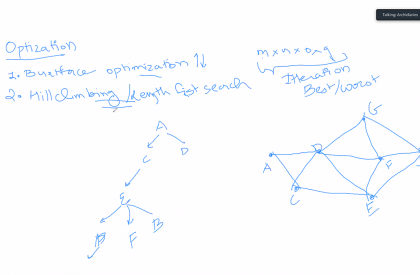 Talking Archidiams
Optization
1. Buetforce optimization ↑↓
2. Hillclimbing /Length first search
m x n x o x q
Iteration
Best/worst
A
C D
E
F B
G
A B
F
C
E